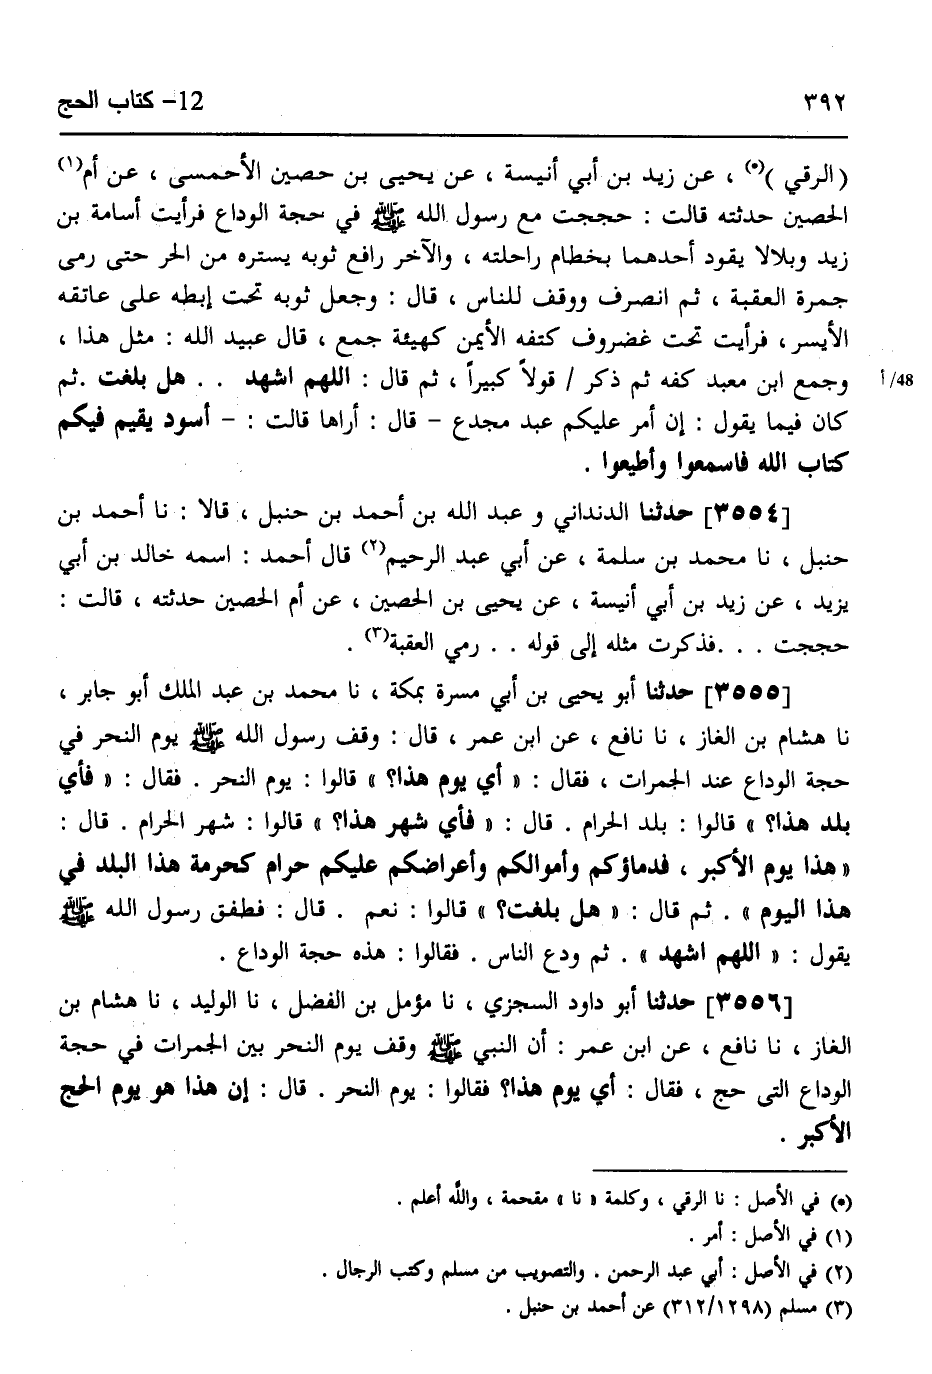 ٣٩٢ 12- كتاب الحج
(الرقي)(*) ، عن زيد بن أبي أنيسة ، عن يحيى بن حصين الأحمسى ، عن أم(١)
الحصين حدثته قالت : حججت مع رسول الله ﷺ في حجة الوداع فرأيت أسامة بن
زيد وبلالا يقود أحدهما بخطام راحلته ، والآخر رافع ثوبه يستره من الحر حتى رمى
جمرة العقبة ، ثم انصرف ووقف للناس ، قال : وجعل ثوبه تحت إبطه على عاتقه
الأيسر ، فرأيت تحت غضروف كتفه الأيمن كهيئة جمع ، قال عبيد الله : مثل هذا ،
وجمع ابن معبد كفه ثم ذكر / قولاً كبيراً ، ثم قال : اللهم اشهد . . هل بلغت .ثم 48/أ
كان فيما يقول : إن أمر عليكم عبد مجدع – قال : أراها قالت : – أسود يقيم فيكم
كتاب الله فاسمعوا وأطيعوا .
[٣٥٥٤] حدثنا الدنداني و عبد الله بن أحمد بن حنبل ، قالا : نا أحمد بن
حنبل ، نا محمد بن سلمة ، عن أبي عبد الرحيم(٢) قال أحمد : اسمه خالد بن أبي
يزيد ، عن زيد بن أبي أنيسة ، عن يحيى بن الحصين ، عن أم الحصين حدثته ، قالت :
حججت . . .فذكرت مثله إلى قوله . . رمي العقبة(٣) .
[٣٥٥٥] حدثنا أبو يحيى بن أبي مسرة بمكة ، نا محمد بن عبد الملك أبو جابر ،
نا هشام بن الغاز ، نا نافع ، عن ابن عمر ، قال : وقف رسول الله ﷺ يوم النحر في
حجة الوداع عند الجمرات ، فقال : « أي يوم هذا؟ » قالوا : يوم النحر . فقال : « فأي
بلد هذا؟ » قالوا : بلد الحرام . قال : « فأي شهر هذا؟ » قالوا : شهر الحرام . قال :
« هذا يوم الأكبر ، فدماؤكم وأموالكم وأعراضكم عليكم حرام كحرمة هذا البلد في
هذا اليوم » . ثم قال : « هل بلغت؟ » قالوا : نعم . قال : فطفق رسول الله ﷺ
يقول : « اللهم اشهد » . ثم ودع الناس . فقالوا : هذه حجة الوداع .
[٣٥٥٦] حدثنا أبو داود السجزي ، نا مؤمل بن الفضل ، نا الوليد ، نا هشام بن
الغاز ، نا نافع ، عن ابن عمر : أن النبي ﷺ وقف يوم النحر بين الجمرات في حجة
الوداع التى حج ، فقال : أي يوم هذا؟ فقالوا : يوم النحر . قال : إن هذا هو يوم الحج
الأكبر .
(*) في الأصل : نا الرقي ، وكلمة « نا » مقحمة ، والله أعلم .
(١) في الأصل : أمر .
(٢) في الأصل : أبي عبد الرحمن . والتصويب من مسلم وكتب الرجال .
(٣) مسلم (٣١٢/١٢٩٨) عن أحمد بن حنبل .